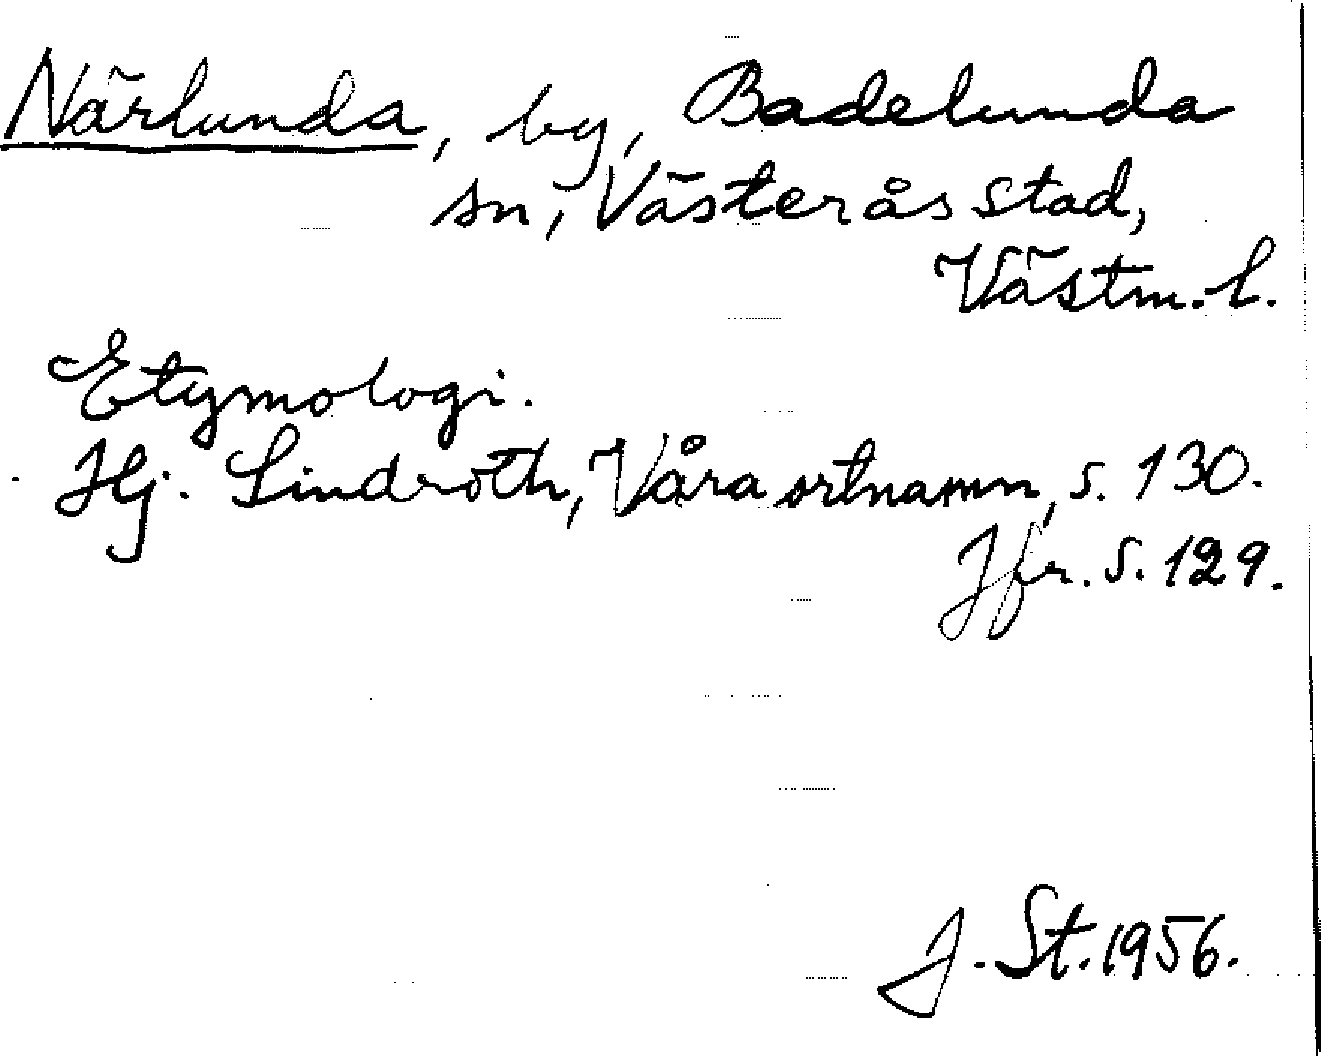 Närlunda, by, Badelunda
sn, Västerås stad,
Västm. l.
Etymologi.
Hj. Lindroth, Våra ortnamn, s. 130.
Jfr. s. 129.
J. St. 1956.